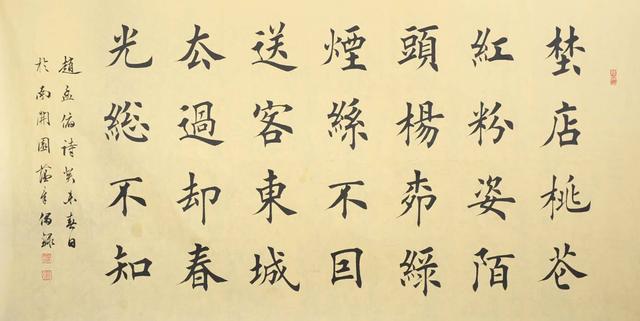 埜店桃花
紅粉姿陌
頭楊桺綠
煙絲不囙
送客東城
厺過却春
光緫不知
趙孟俯詩癸未春日
於南開園偶錄